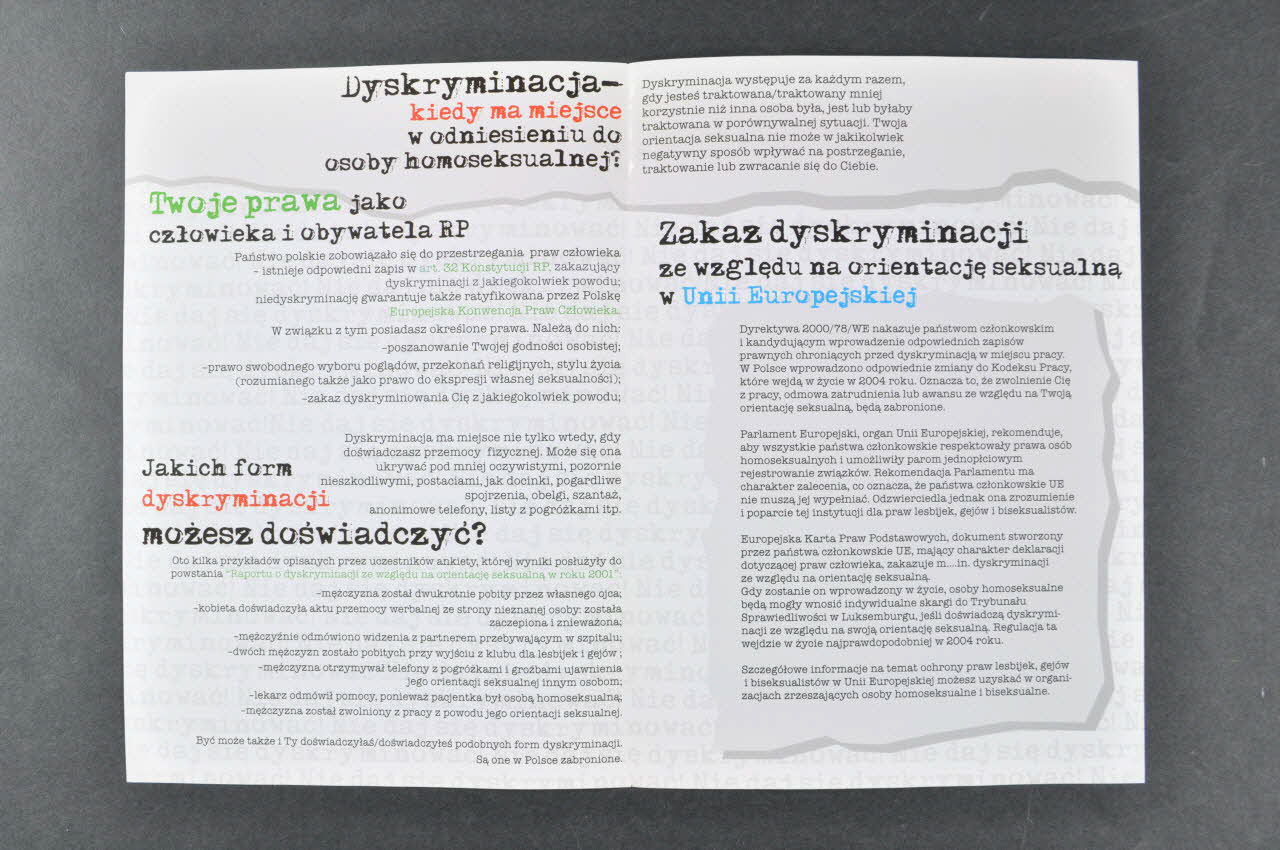 Dyskryminacja–
kiedy ma miejsce
w odniesieniu do
osoby homoseksualnej?
Dyskryminacja występuje za każdym razem,
gdy jesteś traktowana/traktowany mniej
korzystnie niż inna osoba była, jest lub byłaby
traktowana w porównywalnej sytuacji. Twoja
orientacja seksualna nie może w jakikolwiek
negatywny sposób wpływać na postrzeganie,
traktowanie lub zwracanie się do Ciebie.
Twoje prawa jako
człowieka i obywatela RP
Państwo polskie zobowiązało się do przestrzegania praw człowieka
– istnieje odpowiedni zapis w art. 32 Konstytucji RP, zakazujący
dyskryminacji z jakiegokolwiek powodu;
niedyskryminację gwarantuje także ratyfikowana przez Polskę
Europejska Konwencja Praw Człowieka.
W związku z tym posiadasz określone prawa. Należą do nich:
–poszanowanie Twojej godności osobistej;
–prawo swobodnego wyboru poglądów, przekonań religijnych, stylu życia
(rozumianego także jako prawo do ekspresji własnej seksualności);
–zakaz dyskryminowania Cię z jakiegokolwiek powodu;
Jakich form
dyskryminacji
możesz doświadczyć?
Dyskryminacja ma miejsce nie tylko wtedy, gdy
doświadczasz przemocy fizycznej. Może się ona
ukrywać pod mniej oczywistymi, pozornie
nieszkodliwymi, postaciami, jak docinki, pogardliwe
spojrzenia, obelgi, szantaż,
anonimowe telefony, listy z pogróżkami itp.
Oto kilka przykładów opisanych przez uczestników ankiety, której wyniki posłużyły do
powstania "Raportu o dyskryminacji ze względu na orientację seksualną w roku 2001":
–mężczyzna został dwukrotnie pobity przez własnego ojca;
–kobieta doświadczyła aktu przemocy werbalnej ze strony nieznanej osoby: została
zaczepiona i znieważona;
–mężczyźnie odmówiono widzenia z partnerem przebywającym w szpitalu;
–dwóch mężczyzn zostało pobitych przy wyjściu z klubu dla lesbijek i gejów ;
–mężczyzna otrzymywał telefony z pogróżkami i groźbami ujawnienia
jego orientacji seksualnej innym osobom;
–lekarz odmówił pomocy, ponieważ pacjentka był osobą homoseksualną;
–mężczyzna został zwolniony z pracy z powodu jego orientacji seksualnej.
Być może także i Ty doświadczyłaś/doświadczyłeś podobnych form dyskryminacji.
Są one w Polsce zabronione.
Zakaz dyskryminacji
ze względu na orientację seksualną
w Unii Europejskiej
Dyrektywa 2000/78/WE nakazuje państwom członkowskim
i kandydującym wprowadzenie odpowiednich zapisów
prawnych chroniących przed dyskryminacją w miejscu pracy.
W Polsce wprowadzono odpowiednie zmiany do Kodeksu Pracy,
które wejdą w życie w 2004 roku. Oznacza to, że zwolnienie Cię
z pracy, odmowa zatrudnienia lub awansu ze względu na Twoją
orientację seksualną, będą zabronione.
Parlament Europejski, organ Unii Europejskiej, rekomenduje,
aby wszystkie państwa członkowskie respektowały prawa osób
homoseksualnych i umożliwiły parom jednopłciowym
rejestrowanie związków. Rekomendacja Parlamentu ma
charakter zalecenia, co oznacza, że państwa członkowskie UE
nie muszą jej wypełniać. Odzwierciedla jednak ona zrozumienie
i poparcie tej instytucji dla praw lesbijek, gejów i biseksualistów.
Europejska Karta Praw Podstawowych, dokument stworzony
przez państwa członkowskie UE, mający charakter deklaracji
dotyczącej praw człowieka, zakazuje m....in. dyskryminacji
ze względu na orientację seksualną.
Gdy zostanie on wprowadzony w życie, osoby homoseksualne
będą mogły wnosić indywidualne skargi do Trybunału
Sprawiedliwości w Luksemburgu, jeśli doświadczą dyskrymi-
nacji ze względu na swoją orientację seksualną. Regulacja ta
wejdzie w życie najprawdopodobniej w 2004 roku.
Szczegółowe informacje na temat ochrony praw lesbijek, gejów
i biseksualistów w Unii Europejskiej możesz uzyskać w organi-
zacjach zrzeszających osoby homoseksualne i biseksualne.